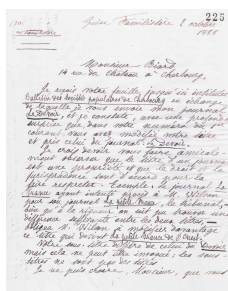 225
Guise Familistère 2 octobre
1888
Monsieur Biard
14 rue du Château à Cherbourg.
Je reçois votre feuille, jusque ici intitulée
Bulletin des Sociétés populaires de Cherbourg en échange
de laquelle je vous envoie mon journal
Le Devoir, et je constate, avec une profonde
surprise que dans votre numéro du 1er
courant vous avez modifié votre
et pris celui de journal: Le Devoir.
Je crois devoir vous faire amicale-
ment observer que le titre d'un journal
est une propriété et que le droit et la
jurisprudence sont d'accord pour la
faire respecter. Exemple: le journal La
France ayant intenté procès à M.
pour son journal la petite France, le tribunal,
différence suffisante entre les deux titres,
obligea M. à modifier davantage
le titre qui devint La petite France de l'Ouest.
Votre sous-titre diffère de celui du Devoir
mais cela ne peut être invoqué: les sous-
titres ne sont pas
Je ne puis croire, Monsieur, que vous